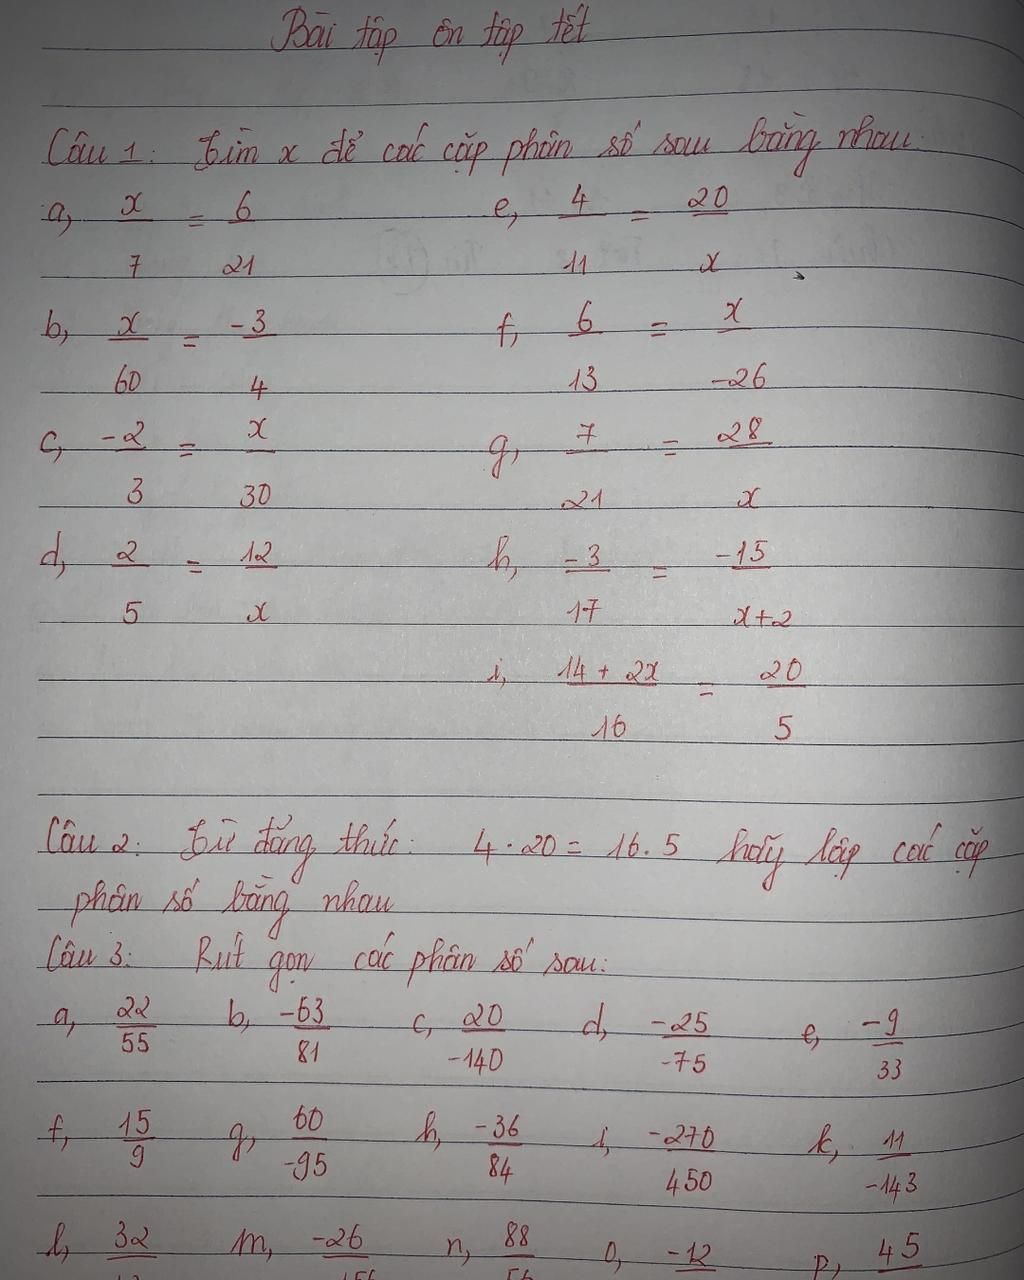 Bài tập ôn tập tết
Câu 1: Tìm x để các cặp phân số sau bằng nhau:
a, x/7 = 6/21 e, 4/11 = 20/x
b, x/60 = -3/4 f, 6/13 = x/-26
c, -2/3 = x/30 g, 7/21 = 28/x
d, 2/5 = 12/x h, -3/17 = -15/x+2
i, 14 + 2x/16 = 20/5
Câu 2: Từ đẳng thức: 4 . 20 = 16 . 5 hãy lập các cặp
phân số bằng nhau
Câu 3: Rút gọn các phân số sau:
a, 22/55 b, -63/81 c, 20/-140 d, -25/-75 e, -9/33
f, 15/9 g, 60/-95 h, -36/84 i, -270/450 k, 11/-143
l, 32 m, -26 n, 88 o, -12 p, 45